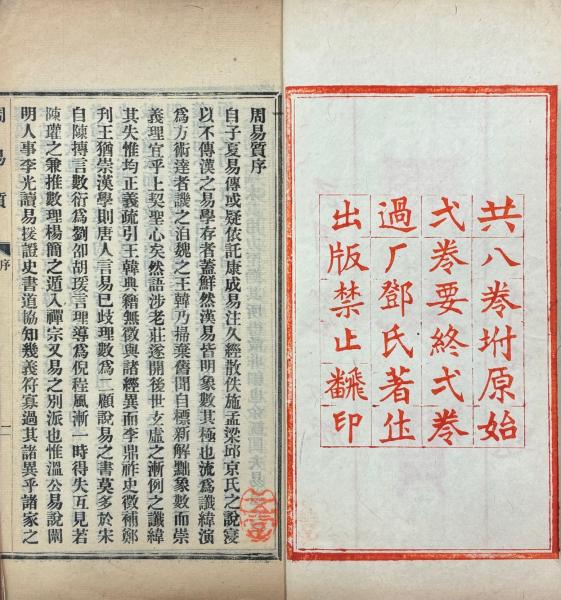 共八卷坿原始
弍卷要終弍卷
過厂鄧氏著㑅
出版禁止飜印
周易質序
自子夏易傳或疑依託康成易注久經散佚施孟梁邱京氏之說寖
以不傳漢之易學存者蓋鮮然漢易皆明象數其極也流爲讖緯演
爲方術達者譏之洎魏之王韓乃掃棄舊聞自標新解黜象數而崇
義理宜乎上契聖心矣然語涉老莊遂開後世玄虛之漸例之讖緯
其失惟均正義疏引王韓典籍無徵與諸經異而李鼎祚史徵補鄭
刋王猶崇漢學則唐人言易已歧理數爲二顧說易之書莫多於宋
自陳摶言數衍爲劉邵胡瑗言理導爲倪程風漸一時得失互見若
陳瓘之兼推數理楊簡之遁入禪宗又易之別派也惟溫公易說闡
明人事李光讀易援證史書道協知幾義符寡過其諸異乎諸家之
周易質
序
一